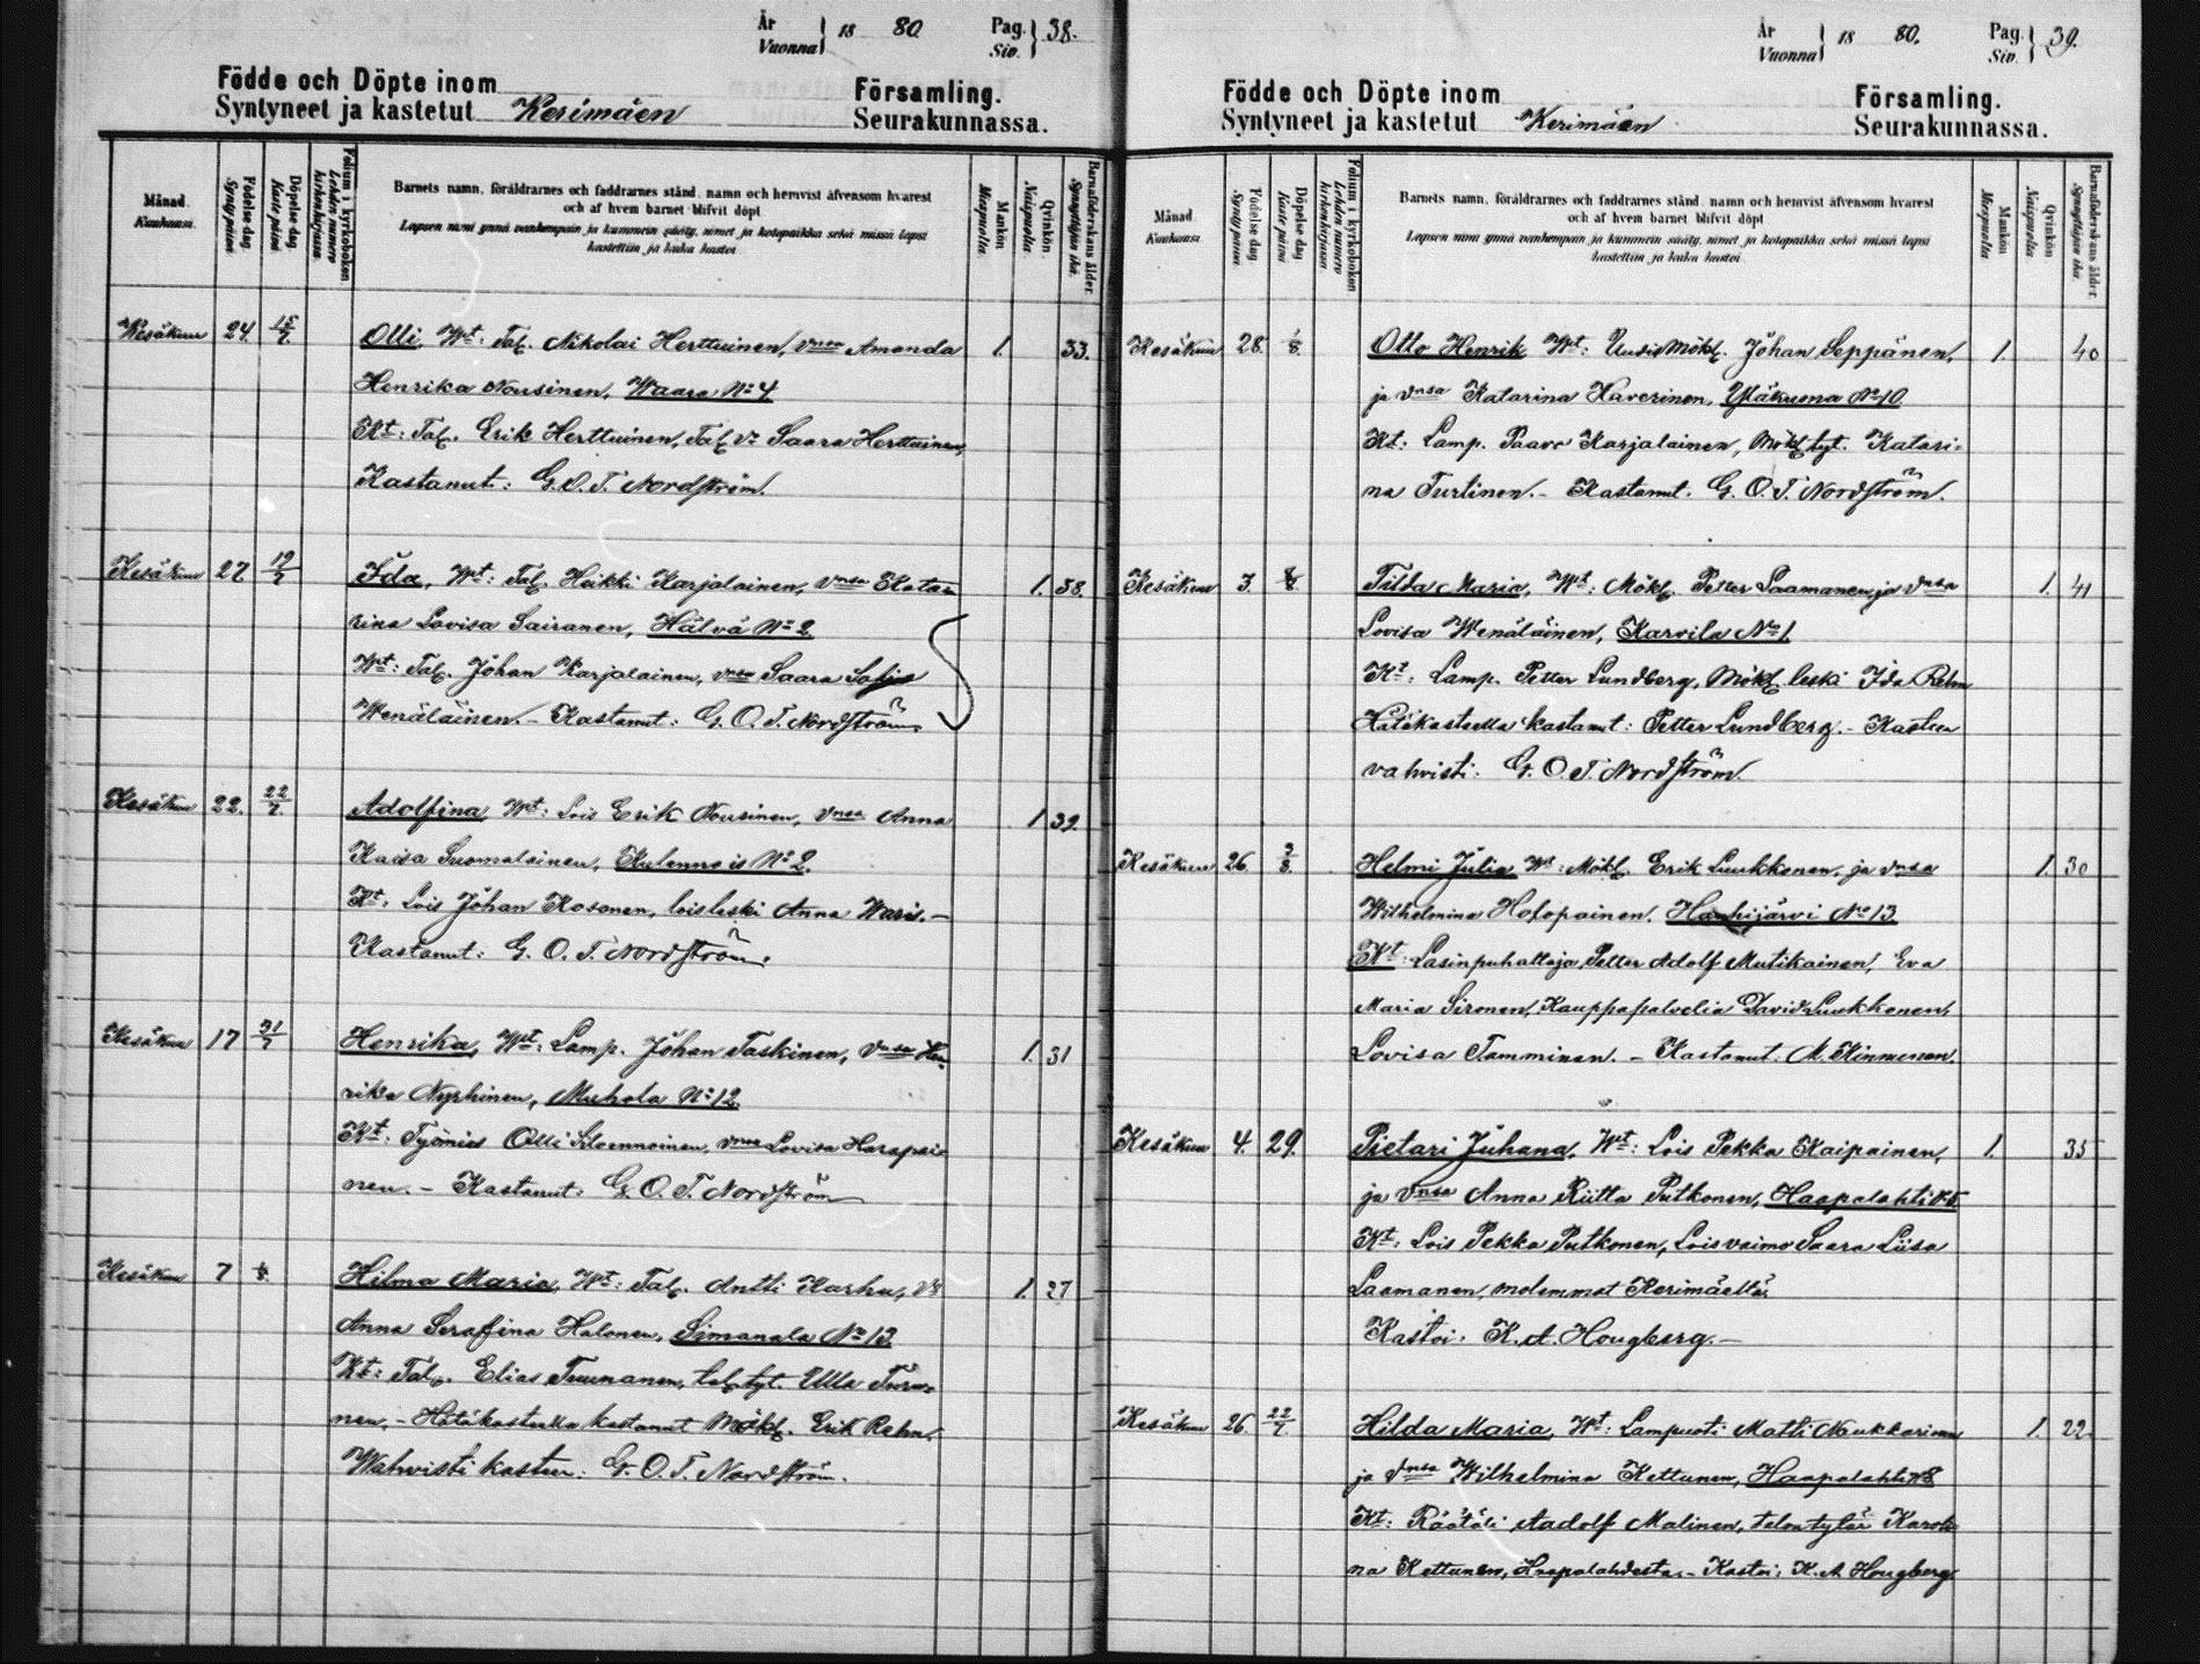 År
Vuonna 18 80 Pag. Siv. 38.
Födde och Döpte inom Församling.
Syntyneet ja kastetut Kerimäen Seurakunnassa.
Månad Kuukausi.
Födelse dag. Synty päivä
Döpelse dag. Kaste päivä
Folium i kyrkoboken Lehden numero kirkonkirjassa
Barnets namn, föräldrarnes och faddrarnes stånd, namn och hemvist äfvensom hvarest
och af hvem barnet blifvit döpt
Lapsen nimi ynnä vanhempain ja kummein sääty, nimet ja kotopaikka sekä missä lapsi
kastettiin ja kuka kastoi
Mankön Miespuolta.
Qvinkön. Naispuolta.
Barnaföderskans ålder. Synnyttäjän ikä.
Kesäkuu 24. 15/7. Olli, Wt: Tal. Nikolai Herttuinen, vnsa Amanda 1. 33.
Henrika Nousinen, Waara No 4
Kt: Tal. Erik Herttuinen, Tal. vo Saara Herttuinen,
Kastanut: G. O. T. Nordström.
Kesäkuu 27 19/7 Ida, Wt: Tal. Heikki Karjalainen, vnsa Kata- 1. 38.
rina Lovisa Sairanen, Hälvä No 2
Wt: Tal. Johan Karjalainen, vnsa Saara
Wenäläinen. - Kastanut: G. O. T. Nordström.
Kesäkuu 22. 22/7. Adolfina, Wt: Lois Erik Nousinen, vnsa Anna 1 39.
Kaisa Suomalainen, Kulennois No 2.
Kt: Lois Johan Kosonen, loisleski Anna Waris. -
Kastanut: G. O. T. Nordström.
Kesäkuu 17 31/7 Henrika, Wt: Lamp. Johan Taskinen, vnsa Hen- 1. 31
rika Nyrhinen, Muhola No 12
Kt: Työmies Olli Silvennoinen, vnsa Lovisa Harapai-
nen. - Kastanut: G. O. T. Nordström
Kesäkuu 7 Hilma Maria, Wt: Tal. Antti Karhu, vs 1. 27
Anna Serafina Halonen, Simanala No 13
Kt: Tal. Elias Tuunanen, tal. tyt. Ulla Turu-
nen. - Hätäkasteella kastanut Mökl. Erik Rehn.
Wahvisti kasteen: G. O. T. Nordström.
År
Vuonna 18 80. Pag. Siv. 39.
Födde och Döpte inom Församling.
Syntyneet ja kastetut Kerimäen Seurakunnassa.
Månad Kuukausi
Födelse dag Synty päivä
Döpelse dag Kaste päivä
Folium i kyrkoboken Lehden numero kirkonkirjassa
Barnets namn, föräldrarnes och faddrarnes stånd, namn och hemvist äfvensom hvarest
och af hvem barnet blifvit döpt
Lapsen nimi ynnä vanhempain ja kummein sääty, nimet ja kotopaikka sekä missä lapsi
kastettiin ja kuka kastoi
Mankön Miespuolta
Qvinkön Naispuolta.
Barnaföderskans ålder Synnyttäjän ikä.
Kesäkuu 28. 1/8. Otto Henrik, Wt: Uudismökl. Johan Seppänen, 1. 40
ja vnsa Katarina Haverinen, Yläkuona No 10
Kt: Lamp. Paavo Karjalainen, Mökl tyt. Katari-
na Turtinen. - Kastanut. G. O. T. Nordström.
Kesäkuu 3. Tilda Maria, Wt: Mökl. Petter Laamanen ja vnsa 1. 41
Lovisa Wenäläinen, Karvila No 1
Kt: Lamp. Petter Lundberg, Mökl leski Ida Rehn
Hätäkasteella kastanut: Petter Lundberg. - Kasteen
vahvisti: G. O. T. Nordström.
Kesäkuu 26. 3/8. Helmi Julia, Wt: Mökl. Erik Luukkonen, ja vnsa 1. 30
Wilhelmina Holopainen, Hanhijärvi No 13
Kt: Lasinpuhaltaja Petter Adolf Mutikainen, Eva
Maria Sironen, Kauppapalvelia David Luukkonen,
Lovisa Tamminen. - Kastanut. M. Kinnunen.
Kesäkuu 4. 29. Pietari Juhana, Wt: Lois Pekka Kaipainen, 1. 35
ja vnsa Anna Riitta Putkonen, Haapalahti No 5
Kt: Lois Pekka Putkonen, Loisvaimo Saara Liisa
Laamanen, molemmat Kerimäeltä
Kastoi: K. A. Hougberg. -
Kesäkuu 26. 22/7. Hilda Maria, Wt: Lampuoti Matti Naukkarinen 1. 22
ja vnsa Wilhelmina Kettunen, Haapalahti No 8
Kt: Räätäli Aadolf Malinen, talontytär Karoli-
na Kettunen, Haapalahdesta. - Kastoi: K. A. Hougberg